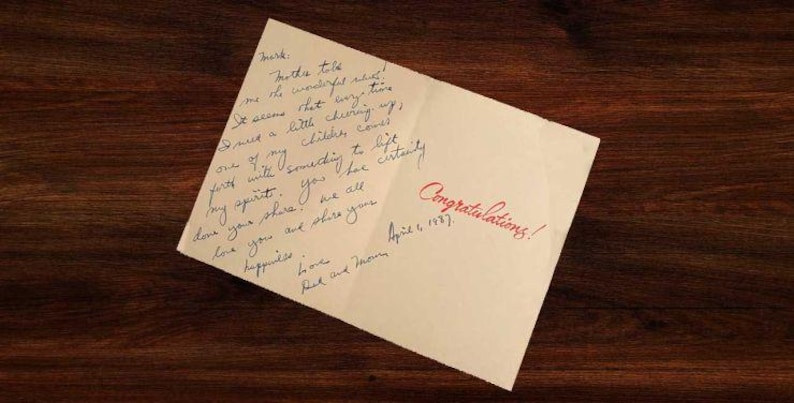 Mark:
Mother told
me the wonderful news!
It seems that every time
I need a little cheering up,
one of my children comes
forth with something to lift
my spirits. You have certainly
done your share. We all
love you and share your
happiness.
Love
Dad and Mom
Congratulations!
April 1, 1987.